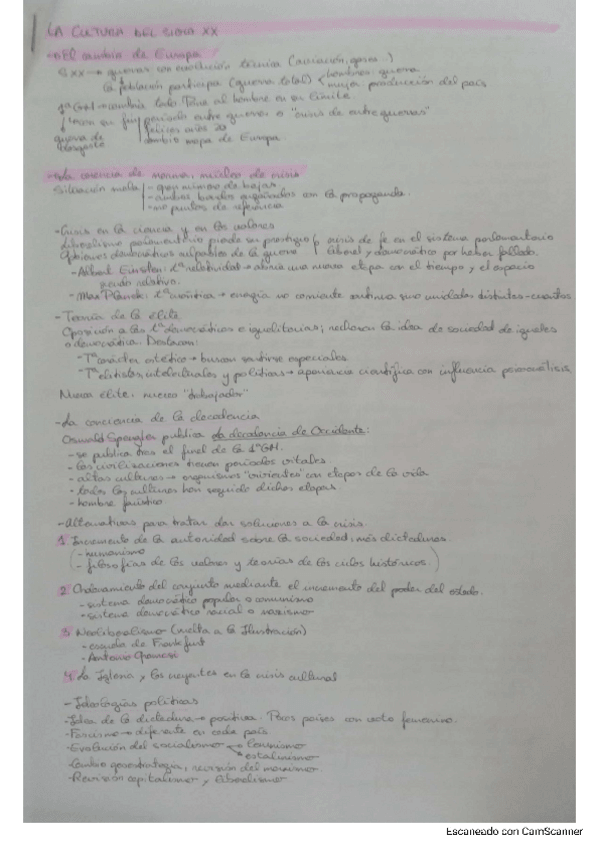 LA CULTURA DEL SIGLO XX
- El cambio de Europa
S. XX → guerras con evolución técnica (aviación, gases...)
La población participa (guerra total) hombres: guerra
mujer: producción del país
1ª GM → cambia todo lleva al hombre en su límite
con su fin, periodo entre guerras o "crisis de entreguerras"
guerra de desgaste
felices años 20
cambio mapa de Europa.
- La carencia de norma, núcleo de crisis
Situación mala - gran número de bajas
- ambos bandos engañados con la propaganda.
- no puntos de referencia
- Crisis en la ciencia y en los valores
Liberalismo parlamentario pierde su prestigio crisis de fe en el sistema parlamentario
Opiniones democráticas culpables de la guerra liberal y democrático por haber fallado.
- Albert Einstein: tª relatividad → abría una nueva etapa con el tiempo y el espacio
siendo relativo.
- Max Planck: tª cuántica → energía no corriente continua sino unidades distintas - cuantos
- Teoría de la élite
Oposición a las tª democráticas e igualitarias; rechazan la idea de sociedad de iguales
o democrática. Destacan:
- Tª carácter estético → buscan sentirse especiales
- Tª elitistas, intelectuales y políticas → apariencia científica con influencia psicoanálisis.
Nueva élite, nuevo "trabajador"
- La conciencia de la decadencia
Oswald Spengler publica La decadencia de Occidente:
- se publica tras el final de la 1ªGM.
- las civilizaciones tienen periodos vitales.
- altas culturas → organismos "vivientes" con etapas de la vida
- todas las culturas han seguido dichas etapas
- hombre fáustico.
- Alternativas para tratar dar soluciones a la crisis.
1. Incremento de la autoridad sobre la sociedad, más dictaduras
(- humanismo
- filosofías de los valores y teorías de los ciclos históricos.)
2. Ordenamiento del conjunto mediante el incremento del poder del estado.
- sistema democrático popular o comunismo
- sistema democrático social o marxismo
3. Neoliberalismo (vuelta a la Ilustración)
- escuela de Frankfurt
- Antonio Gramsci
4. La Iglesia y los creyentes en la crisis cultural
- Ideologías políticas
- Idea de la dictadura → positiva. Pocos países con voto femenino.
- Fascismo → diferente en cada país
- Evolución del socialismo leninismo
estalinismo
- Cambio geoestrategia, revisión del marxismo.
- Revisión capitalismo y liberalismo
Escaneado con CamScanner